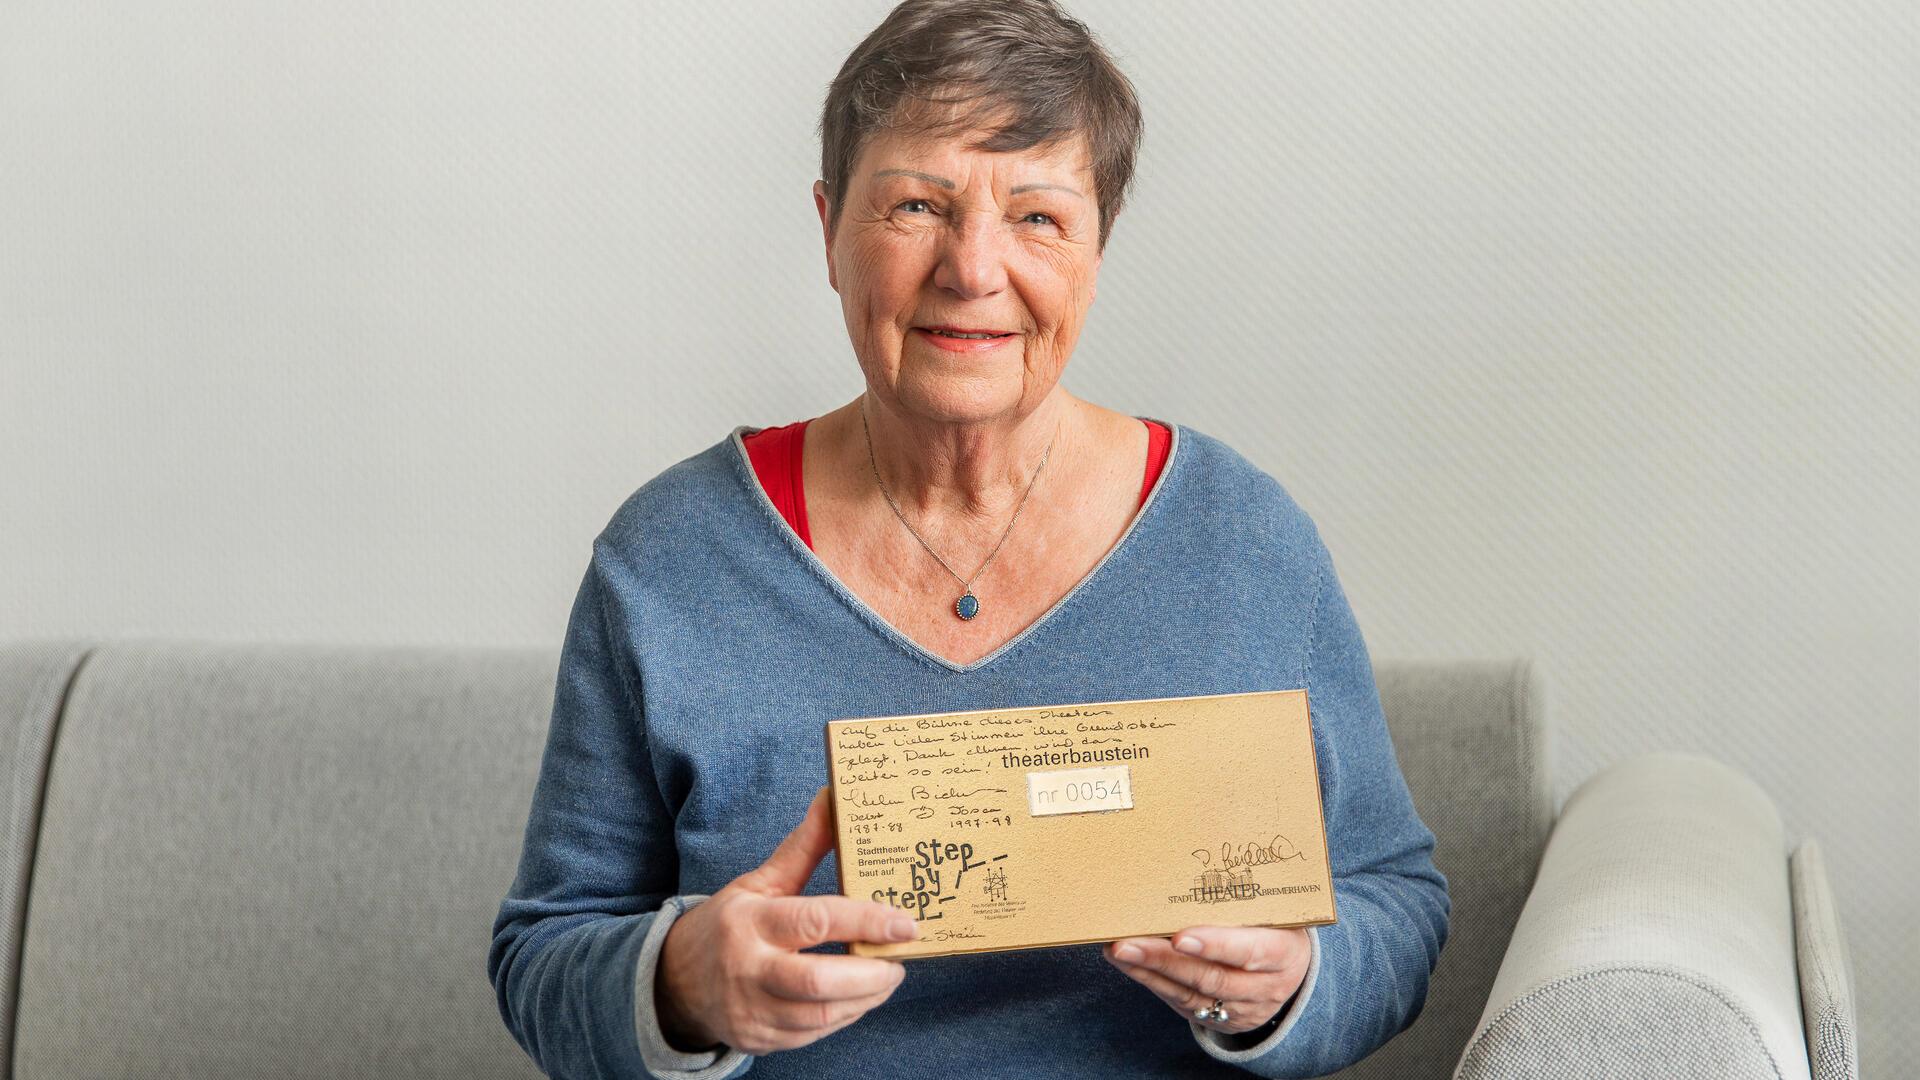 auf die Bühne dieses Theaters
haben vielen Stimmen ihre Grundstein
gelegt, Dank Ihnen, wird das
weiter so sein!
theaterbaustein
nr 0054
Debut Tosca
1987-88 1997-98
das
Stadttheater
Bremerhaven
baut auf
Step
by
step
Eine Initiative des Vereins zur
Förderung des Theater und
Musiklebens e.V.
STADTTHEATERBREMERHAVEN